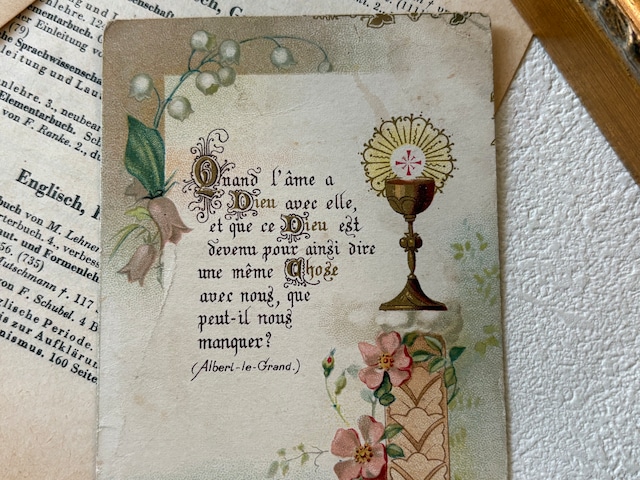 Quand l'âme a
Dieu avec elle,
et que ce Dieu est
devenu pour ainsi dire
une même Chose
avec nous, que
peut-il nous
manquer?
(Albert-le-Grand.)
nlehre. 12
ementarbuch.
Einleitung v
(79)
Sprachwissenscha
leitung und Lau
nlehre. 3., neubear
Elementarbuch. Sch
von F. Ranke. 2., du
Englisch,
buch von M. Lehner
terbuch. 4., verbess
aut- und Formenleh
56. (735)
Mutschmann †. 117
von F. Schubel. 4 B
glische Periode.
is zur Aufklärun
nismus. 160 Seite